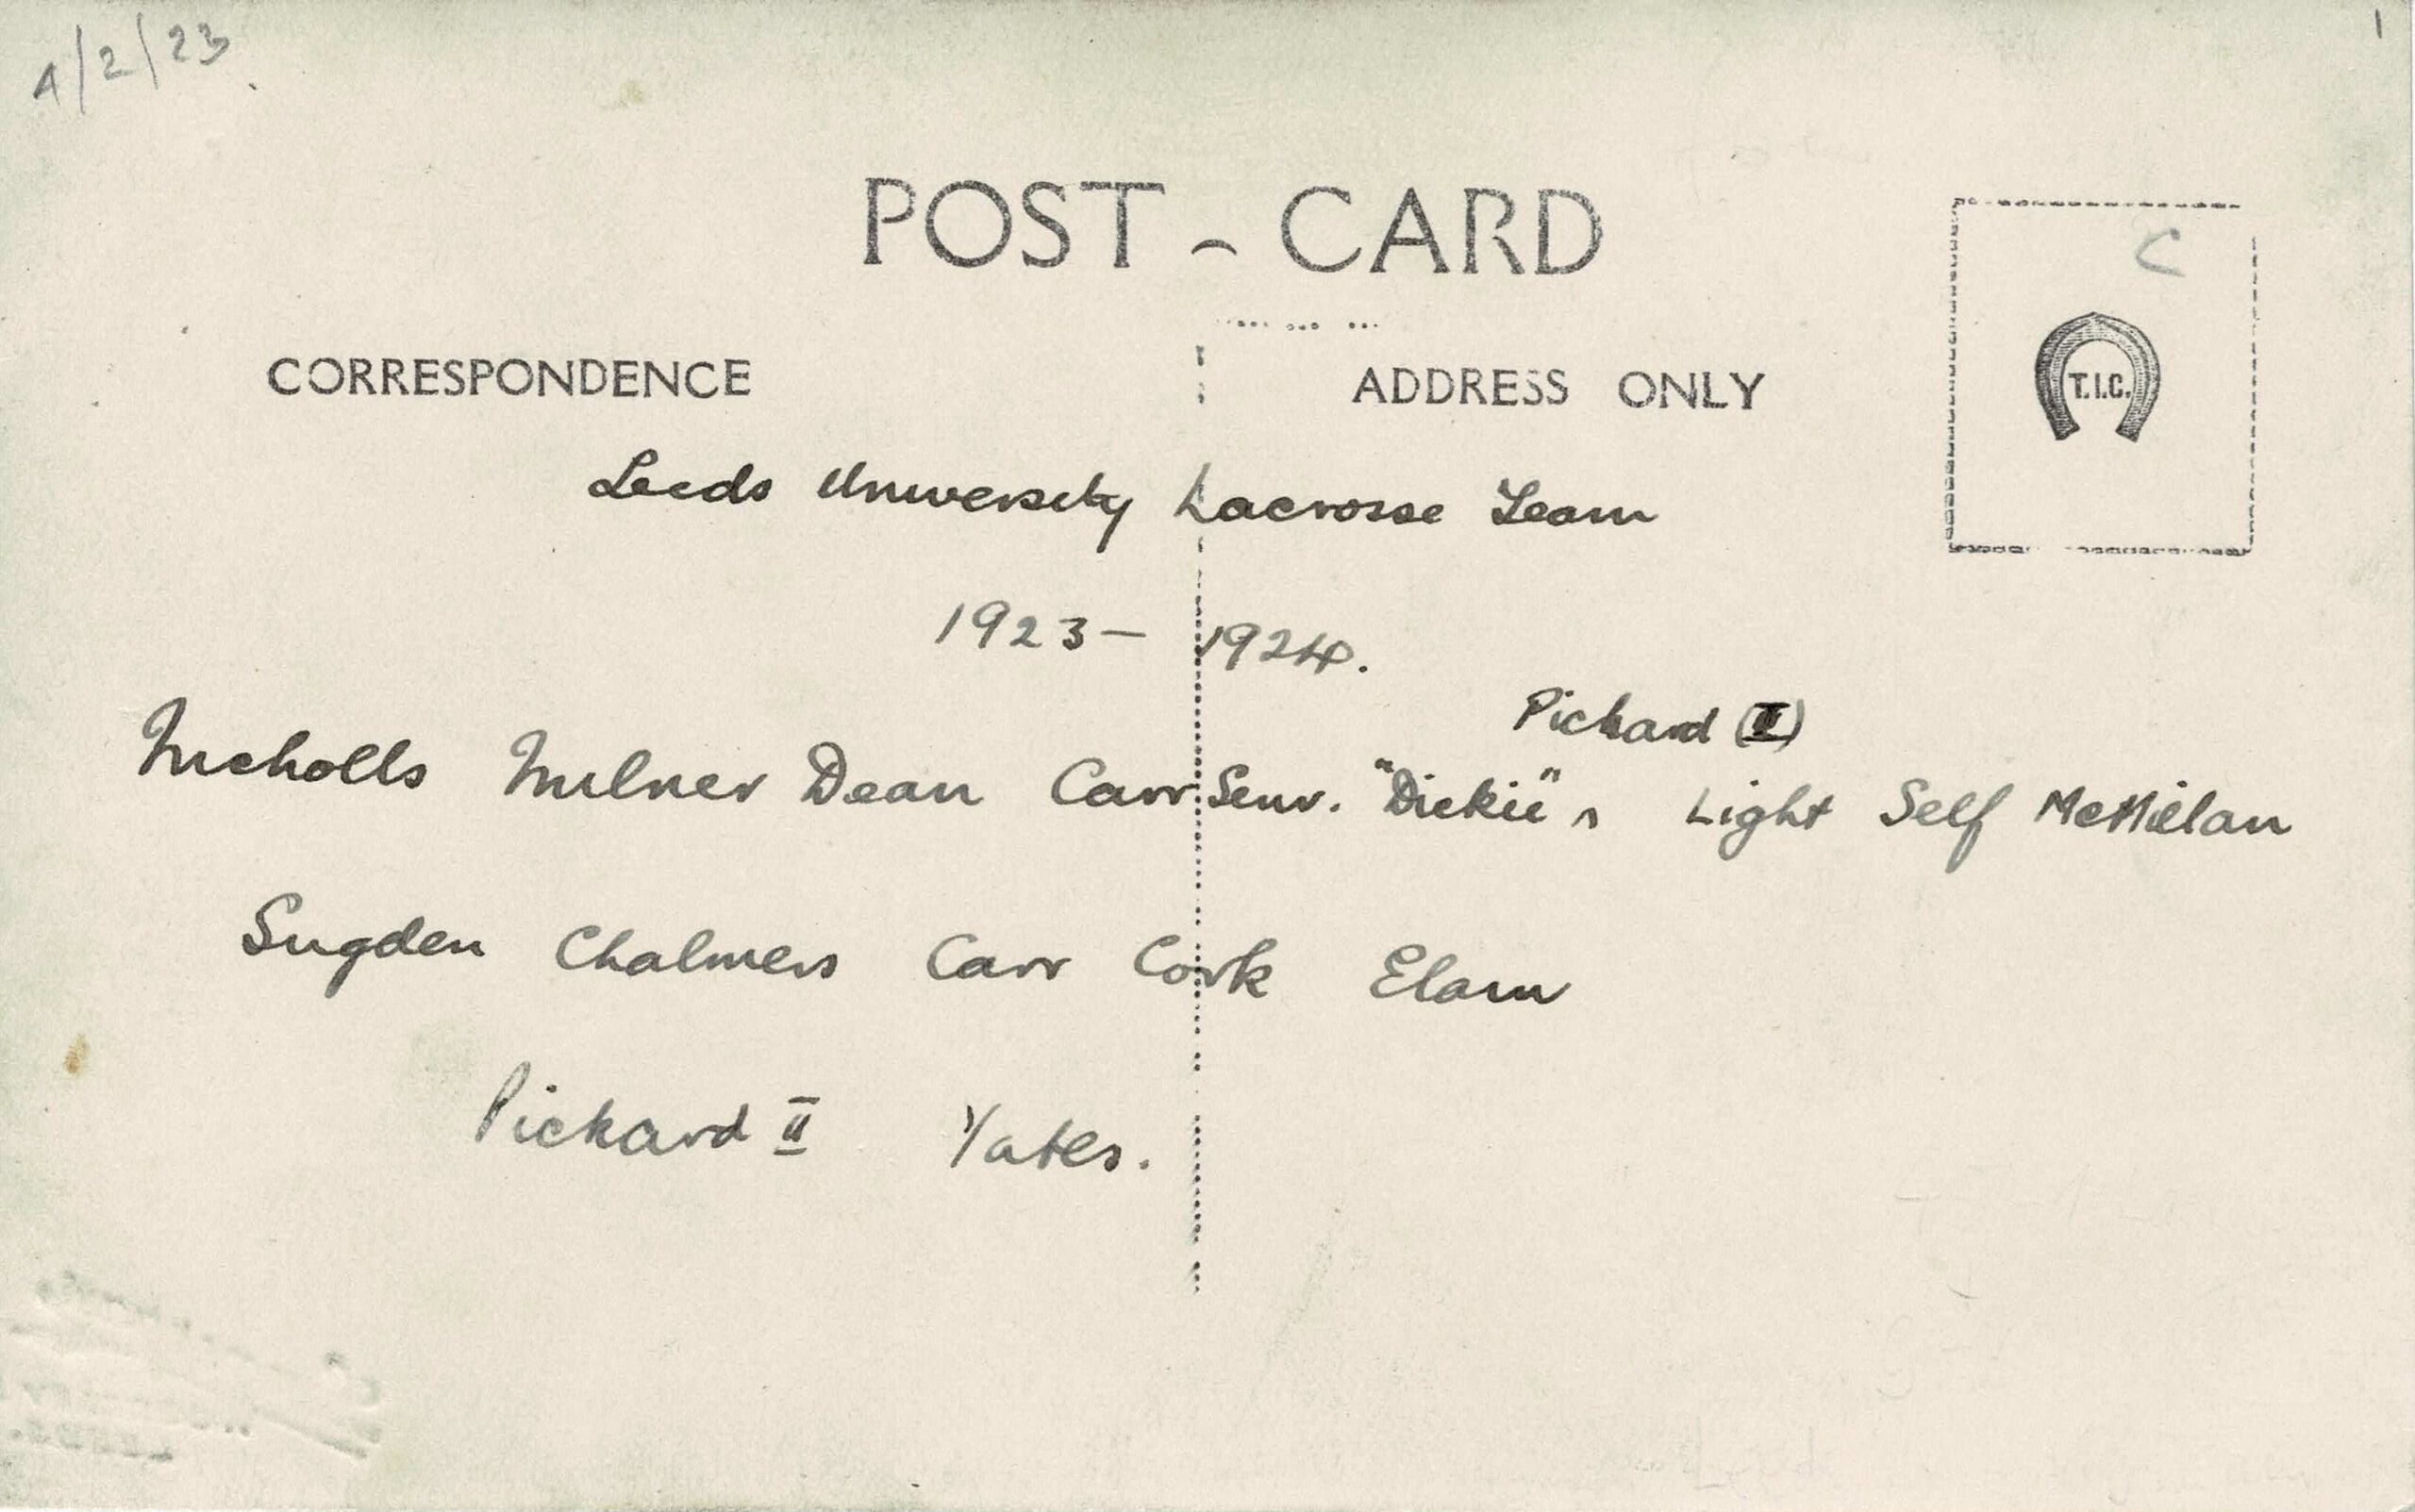 4/2/23
POST - CARD
C
T.I.C.
CORRESPONDENCE
ADDRESS ONLY
Leeds University Lacrosse Team
1923 - 1924.
Pickard (I)
Nicholls Milner Dean Carr Senr. "Dickie" ^ Light Self McMillan
Sugden Chalmers Carr Cork Elam
Pickard II Yates.